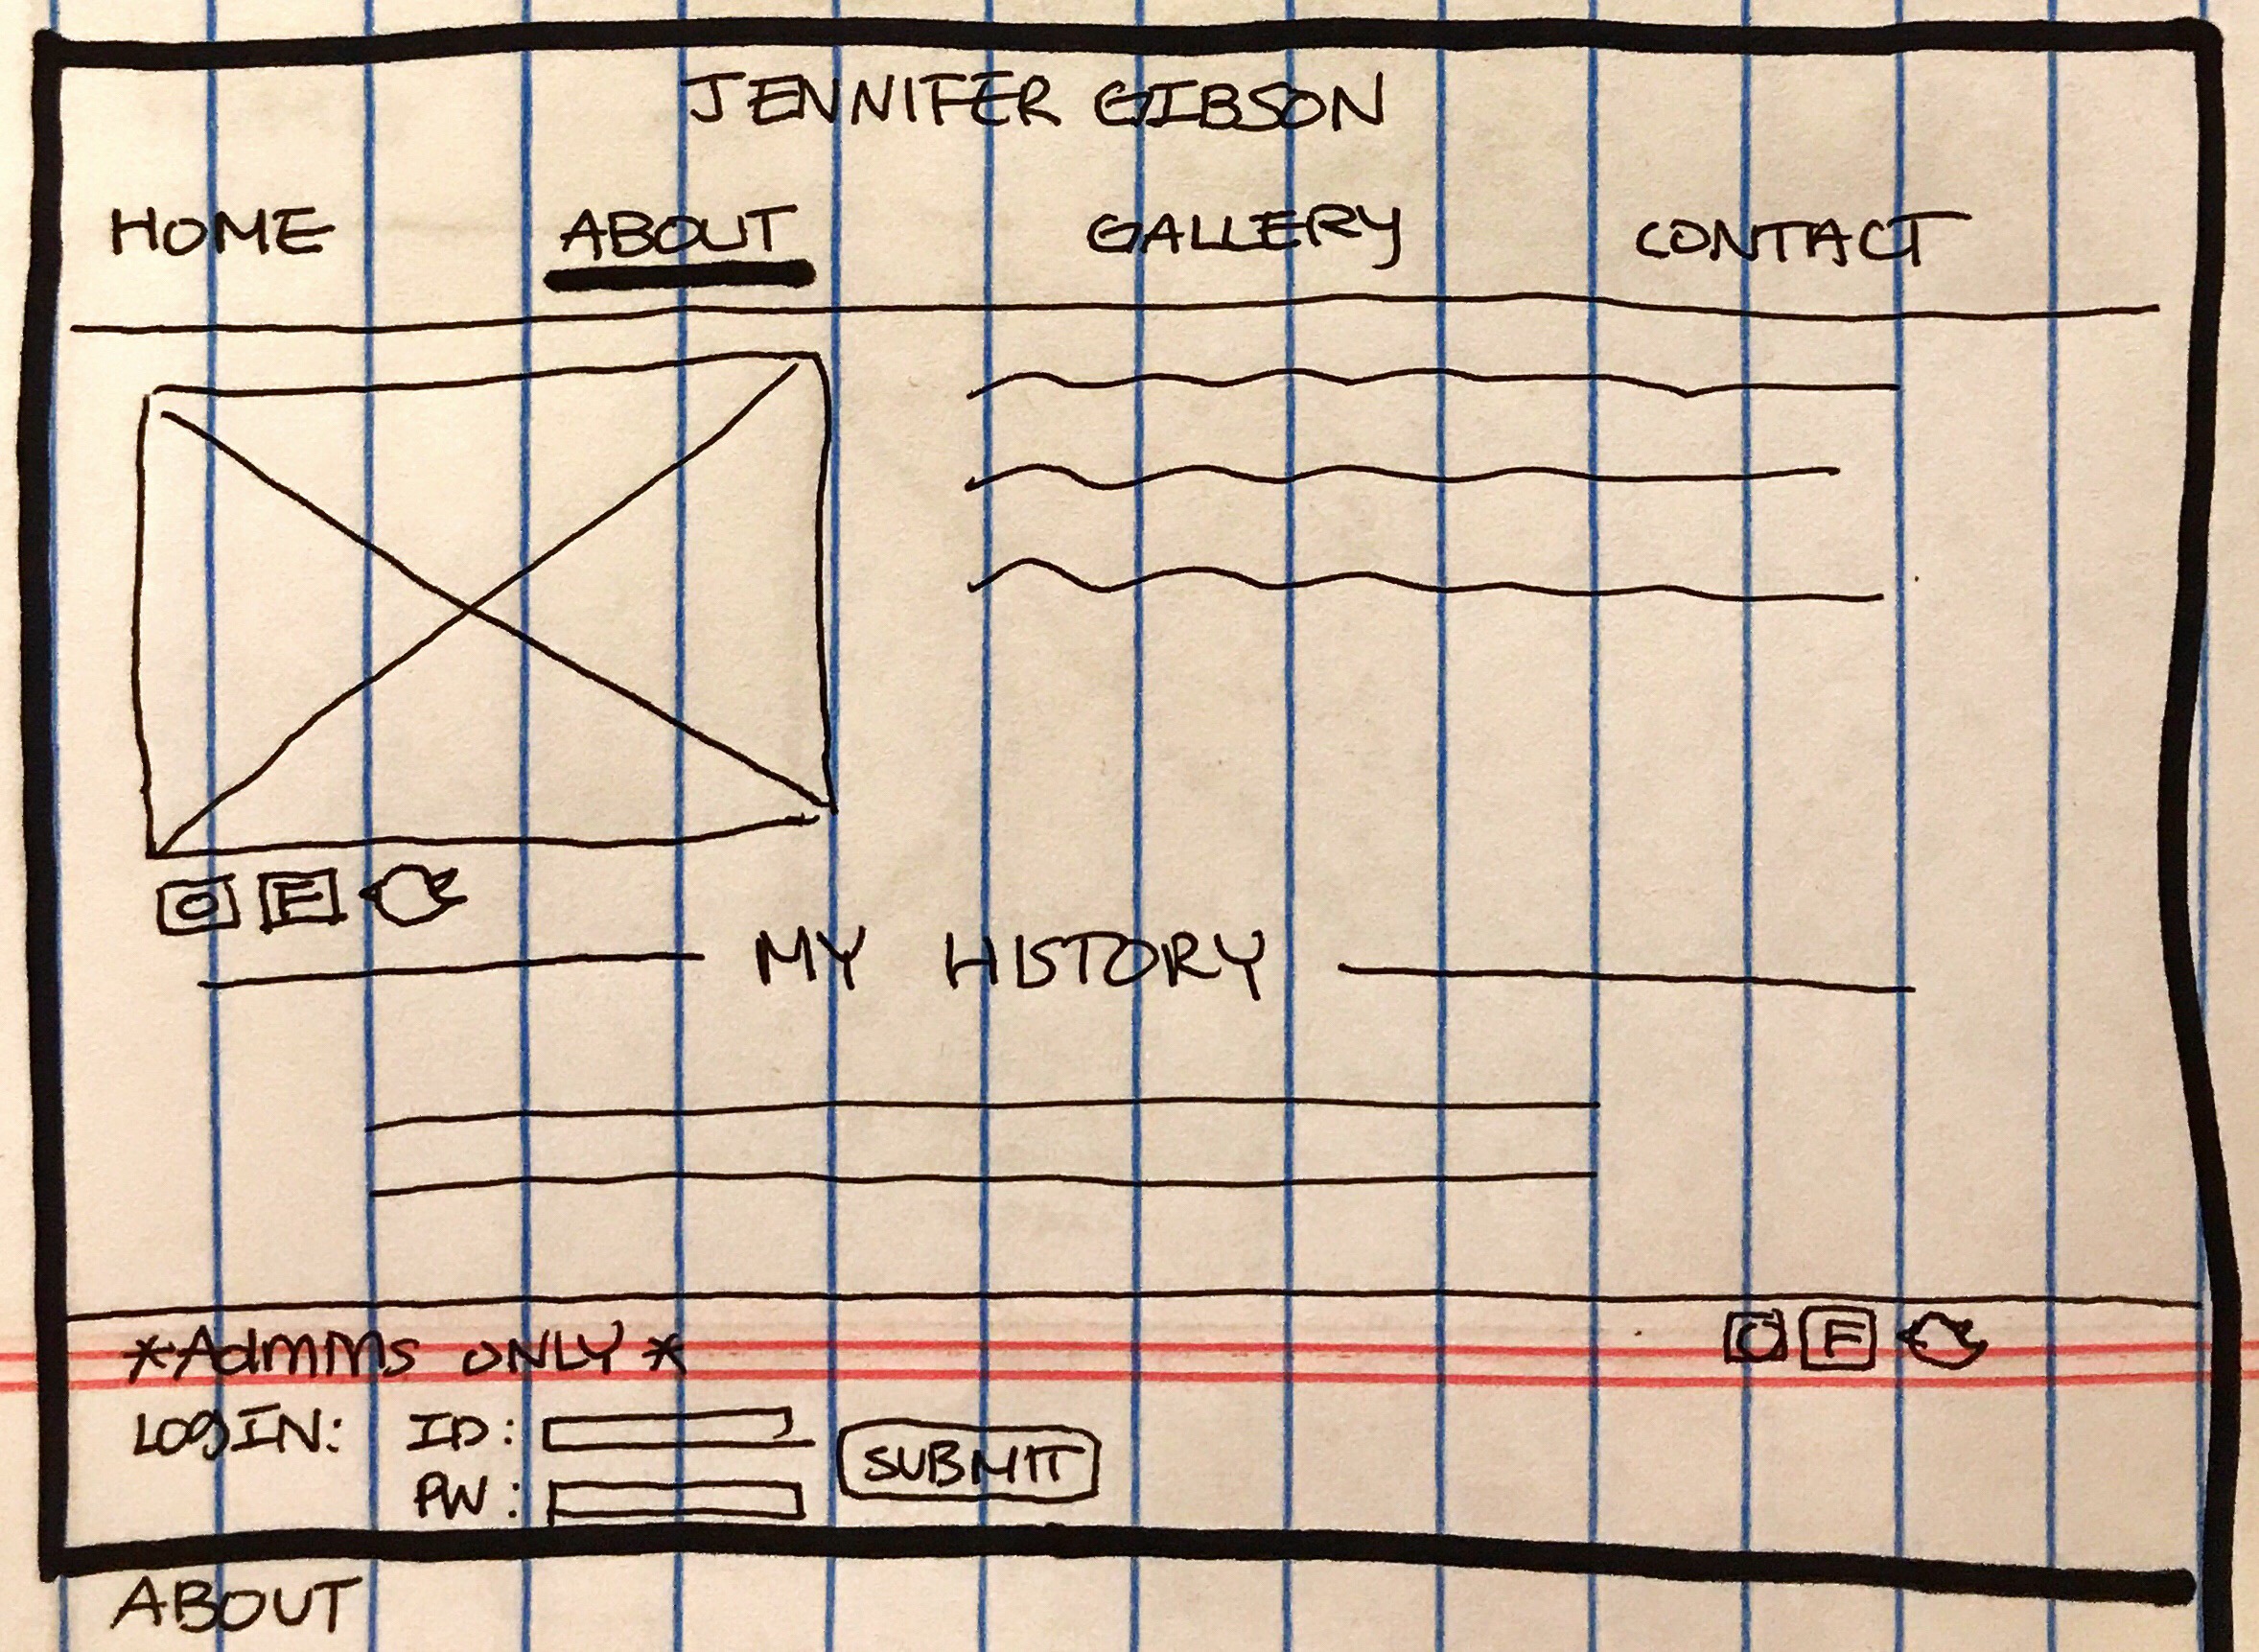 JENNIFER GIBSON
HOME ABOUT GALLERY CONTACT
F
MY HISTORY
*Admins ONLY*
F
LOGIN: ID:
PW:
SUBMIT
ABOUT